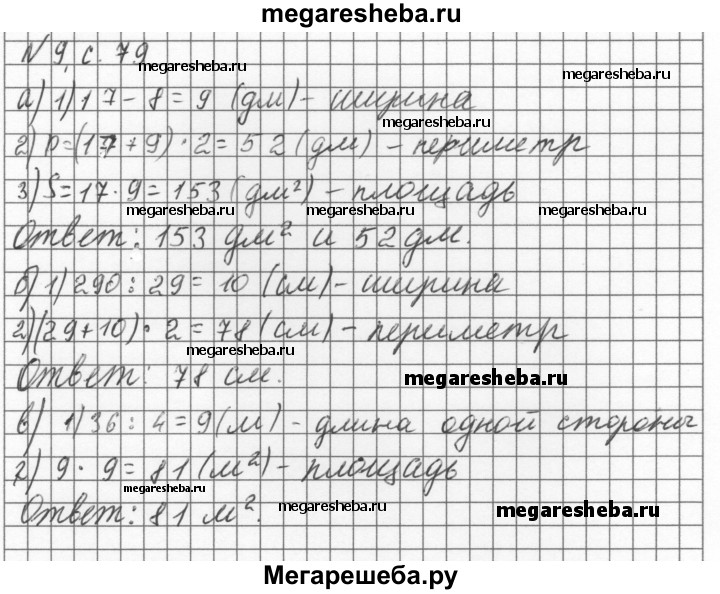 megaresheba.ru
№ 9, с. 79
megaresheba.ru
megaresheba.ru
а) 1) 17 - 8 = 9 (дм) - ширина
megaresheba.ru
2) P=(17+9) · 2 = 52 (дм) - периметр
3) S = 17 · 9 = 153 (дм²) - площадь
megaresheba.ru megaresheba.ru megaresheba.ru
Ответ: 153 дм² и 52 дм.
б) 1) 290 : 29 = 10 (см) - ширина
2) (29+10) · 2 = 78 (см) - периметр
megaresheba.ru
Ответ: 78 см.
megaresheba.ru
в) 1) 36 : 4 = 9 (м) - длина одной стороны
2) 9 · 9 = 81 (м²) - площадь
megaresheba.ru
Ответ: 81 м².
megaresheba.ru
megaresheba.ru
Мегарешеба.ру